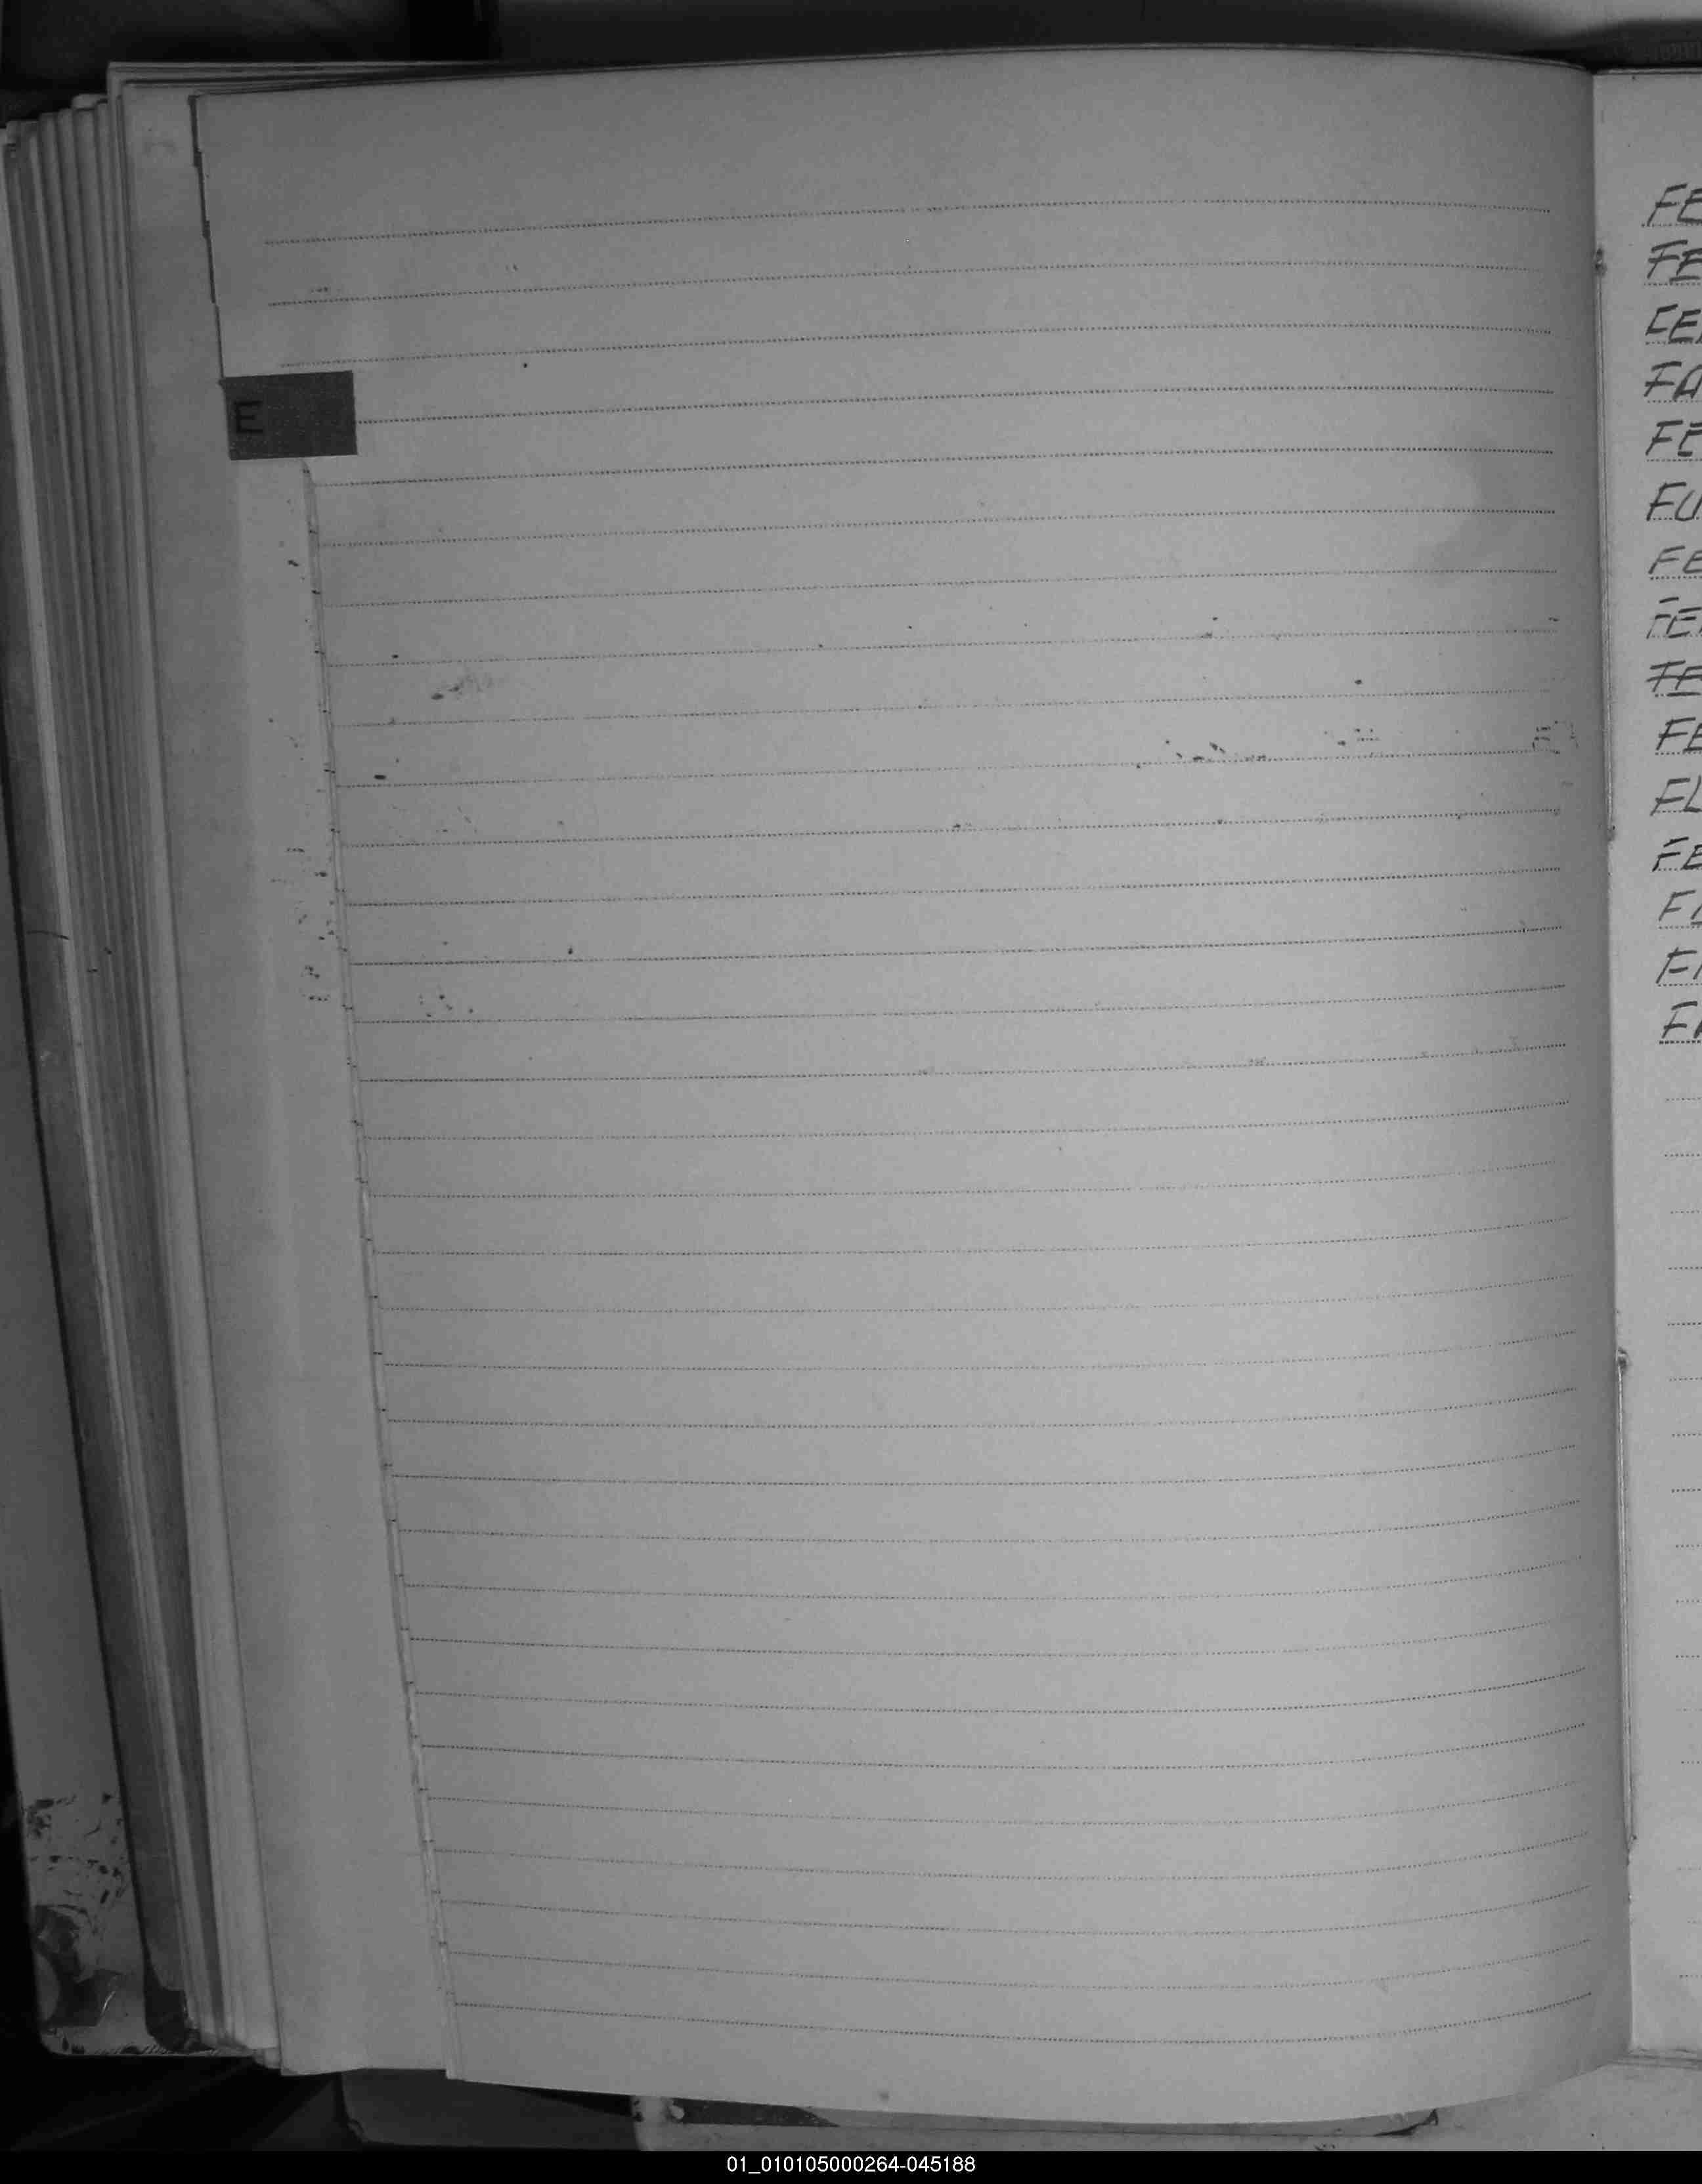 E
FE
FE
FE
FA
FE
FU
FE
FE
FE
FE
FL
FE
FA
01_010105000264-045188